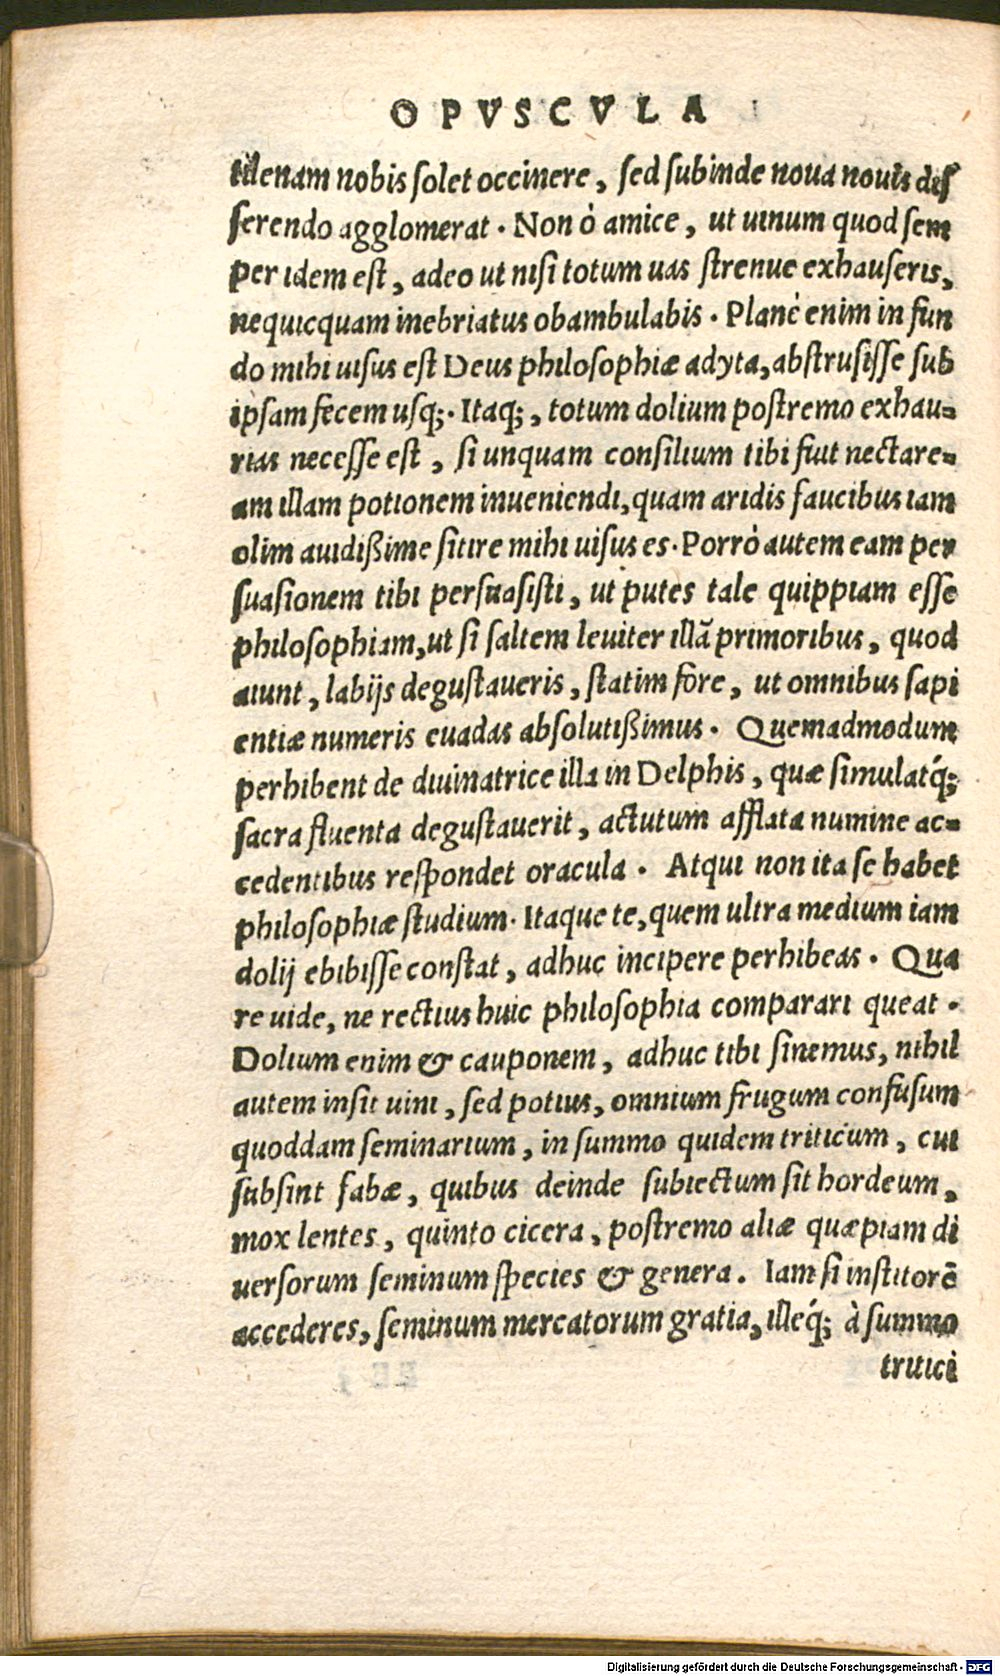 OPVSCVLA
tilenam nobis solet occinere, sed subinde noua nouis dis
serendo agglomerat. Non ò amice, ut uinum quod sem
per idem est, adeo ut nisi totum uas strenue exhauseris,
nequicquam inebriatus obambulabis. Planè enim in fun
do mihi uisus est Deus philosophiæ adyta, abstrusisse sub
ipsam fecem usq;. Itaq;, totum dolium postremo exhau-
rias necesse est, si unquam consilium tibi fuit nectare-
am illam potionem inueniendi, quam aridis faucibus iam
olim auidißime sitire mihi uisus es. Porrò autem eam per
suasionem tibi persuasisti, ut putes tale quippiam esse
philosophiam, ut si saltem leuiter illã primoribus, quod
aiunt, labijs degustaueris, statim fore, ut omnibus sapi
entiæ numeris euadas absolutißimus. Quemadmodum
perhibent de diuinatrice illa in Delphis, quæ simulatq́;
sacra fluenta degustauerit, actutum afflata numine ac-
cedentibus respondet oracula. Atqui non ita se habet
philosophiæ studium. Itaque te, quem ultra medium iam
dolij ebibisse constat, adhuc incipere perhibeas. Qua
re uide, ne rectius huic philosophia comparari queat.
Dolium enim & cauponem, adhuc tibi sinemus, nihil
autem insit uini, sed potius, omnium frugum confusum
quoddam seminarium, in summo quidem triticum, cui
subsint fabæ, quibus deinde subiectum sit hordeum,
mox lentes, quinto cicera, postremo aliæ quæpiam di
uersorum seminum species & genera. Iam si institorẽ
accederes, seminum mercatorum gratia, illeq́; à summo
tritici
Digitalisierung gefördert durch die Deutsche Forschungsgemeinschaft - DFG